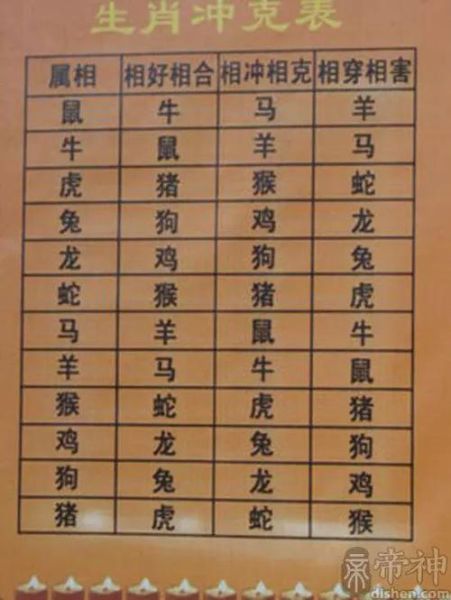 生肖冲克表
属相 相好相合 相冲相克 相穿相害
鼠 牛 马 羊
牛 鼠 羊 马
虎 猪 猴 蛇
兔 狗 鸡 龙
龙 鸡 狗 兔
蛇 猴 猪 虎
马 羊 鼠 牛
羊 马 牛 鼠
猴 蛇 虎 猪
鸡 龙 兔 狗
狗 兔 龙 鸡
猪 虎 蛇 猴
帝神
dishen.com